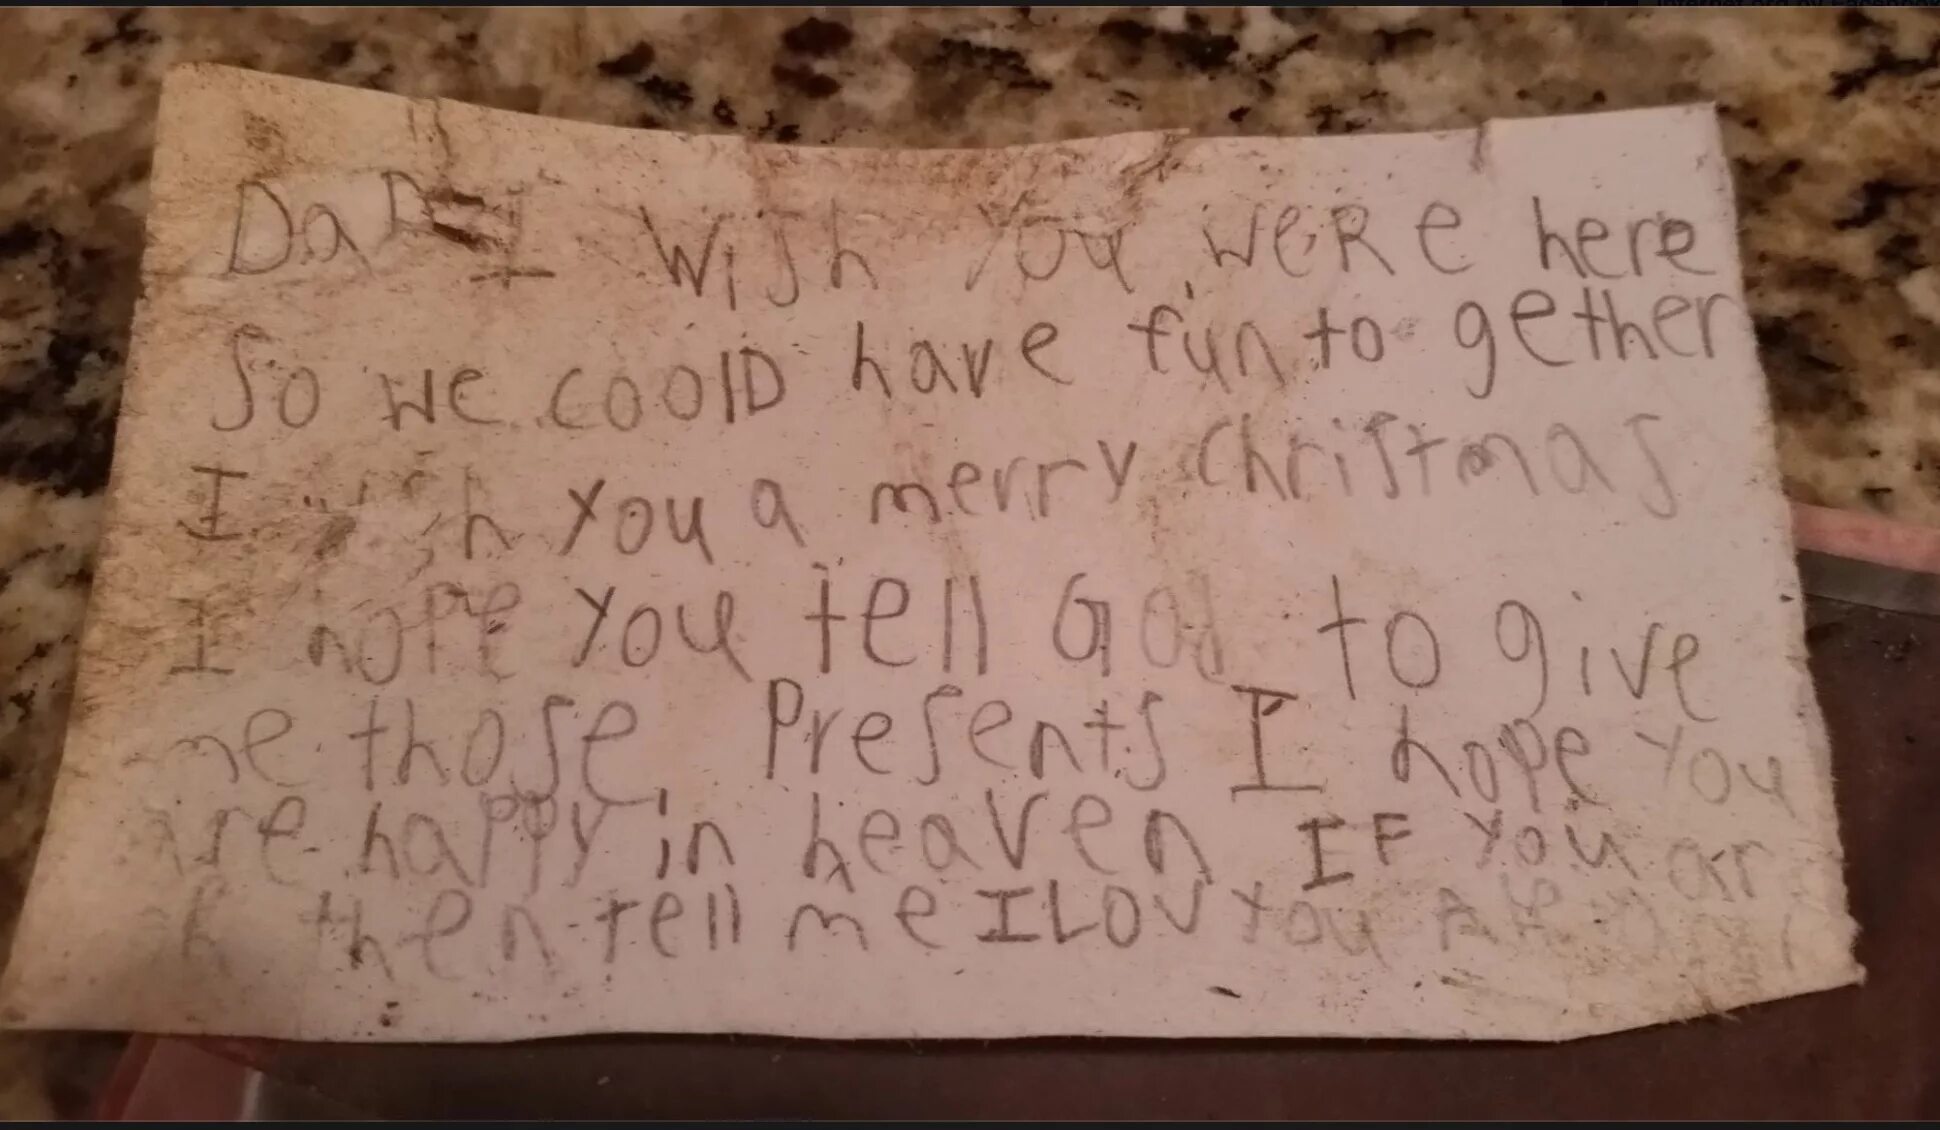 DaD I Wish You weRe here
So we coolD have fun to gether
I you a merry Christmas
I hope you tell God to give
me those Presents I hope you
are happy in heaven IF you
then tell me I LOV You